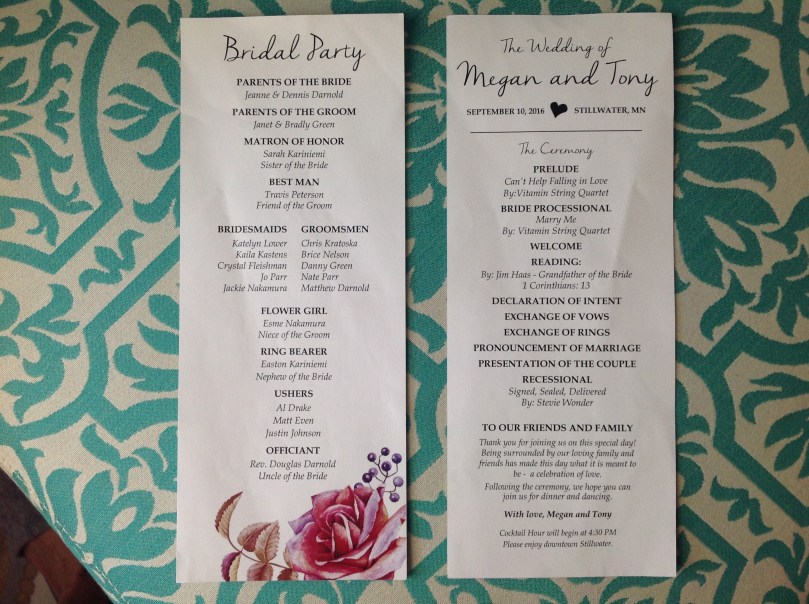 Bridal Party
PARENTS OF THE BRIDE
Jeanne & Dennis Darnold
PARENTS OF THE GROOM
Janet & Bradly Green
MATRON OF HONOR
Sarah Kariniemi
Sister of the Bride
BEST MAN
Travis Peterson
Friend of the Groom
BRIDESMAIDS GROOMSMEN
Katelyn Lower Chris Kratoska
Kaila Kastens Brice Nelson
Crystal Fleishman Danny Green
Jo Parr Nate Parr
Jackie Nakamura Matthew Darnold
FLOWER GIRL
Esme Nakamura
Niece of the Groom
RING BEARER
Easton Kariniemi
Nephew of the Bride
USHERS
Al Drake
Matt Even
Justin Johnson
OFFICIANT
Rev. Douglas Darnold
Uncle of the Bride
The Wedding of
Megan and Tony
SEPTEMBER 10, 2016 STILLWATER, MN
The Ceremony
PRELUDE
Can't Help Falling in Love
By:Vitamin String Quartet
BRIDE PROCESSIONAL
Marry Me
By: Vitamin String Quartet
WELCOME
READING:
By: Jim Haas - Grandfather of the Bride
1 Corinthians: 13
DECLARATION OF INTENT
EXCHANGE OF VOWS
EXCHANGE OF RINGS
PRONOUNCEMENT OF MARRIAGE
PRESENTATION OF THE COUPLE
RECESSIONAL
Signed, Sealed, Delivered
By: Stevie Wonder
TO OUR FRIENDS AND FAMILY
Thank you for joining us on this special day!
Being surrounded by our loving family and
friends has made this day what it is meant to
be - a celebration of love.
Following the ceremony, we hope you can
join us for dinner and dancing.
With love, Megan and Tony
Cocktail Hour will begin at 4:30 PM
Please enjoy downtown Stillwater.